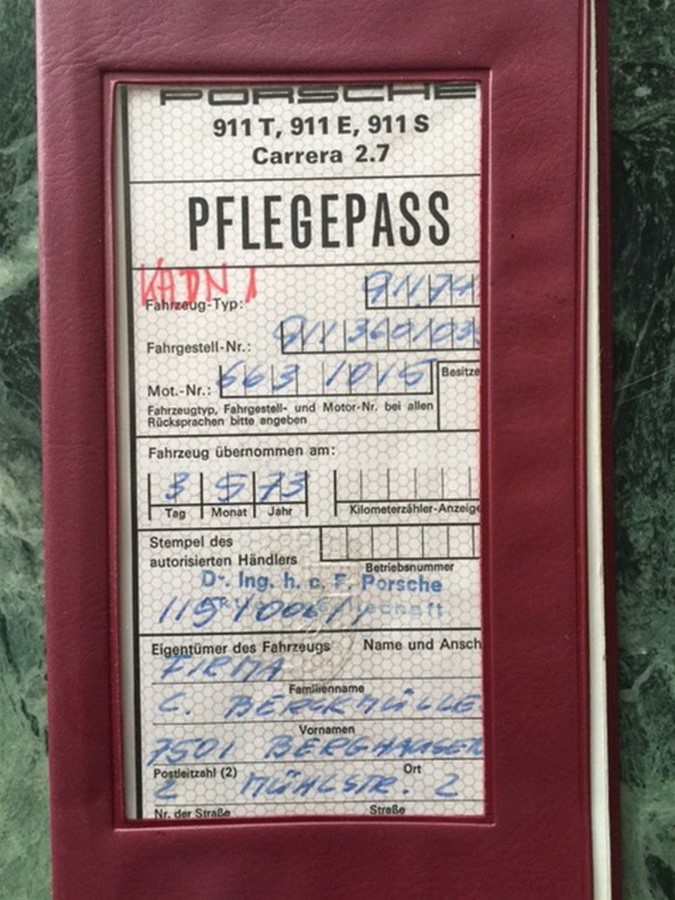 PORSCHE
911 T, 911 E, 911 S
Carrera 2.7
PFLEGEPASS
Fahrzeug-Typ:
Fahrgestell-Nr.: 911 360103
Mot.-Nr.: 663 1015
Besitze
Fahrzeugtyp, Fahrgestell- und Motor-Nr. bei allen
Rücksprachen bitte angeben
Fahrzeug übernommen am:
3 5 73
Tag Monat Jahr Kilometerzähler-Anzeige
Stempel des
autorisierten Händlers
Betriebsnummer
Dr. Ing. h. c. F. Porsche
Eigentümer des Fahrzeugs Name und Ansch
FIRMA
Familienname
C. BERCKMÜLLE
Vornamen
7501 BERGHAUSEN
Postleitzahl (2) Ort
2 MÜHLSTR. 2
Nr. der Straße Straße